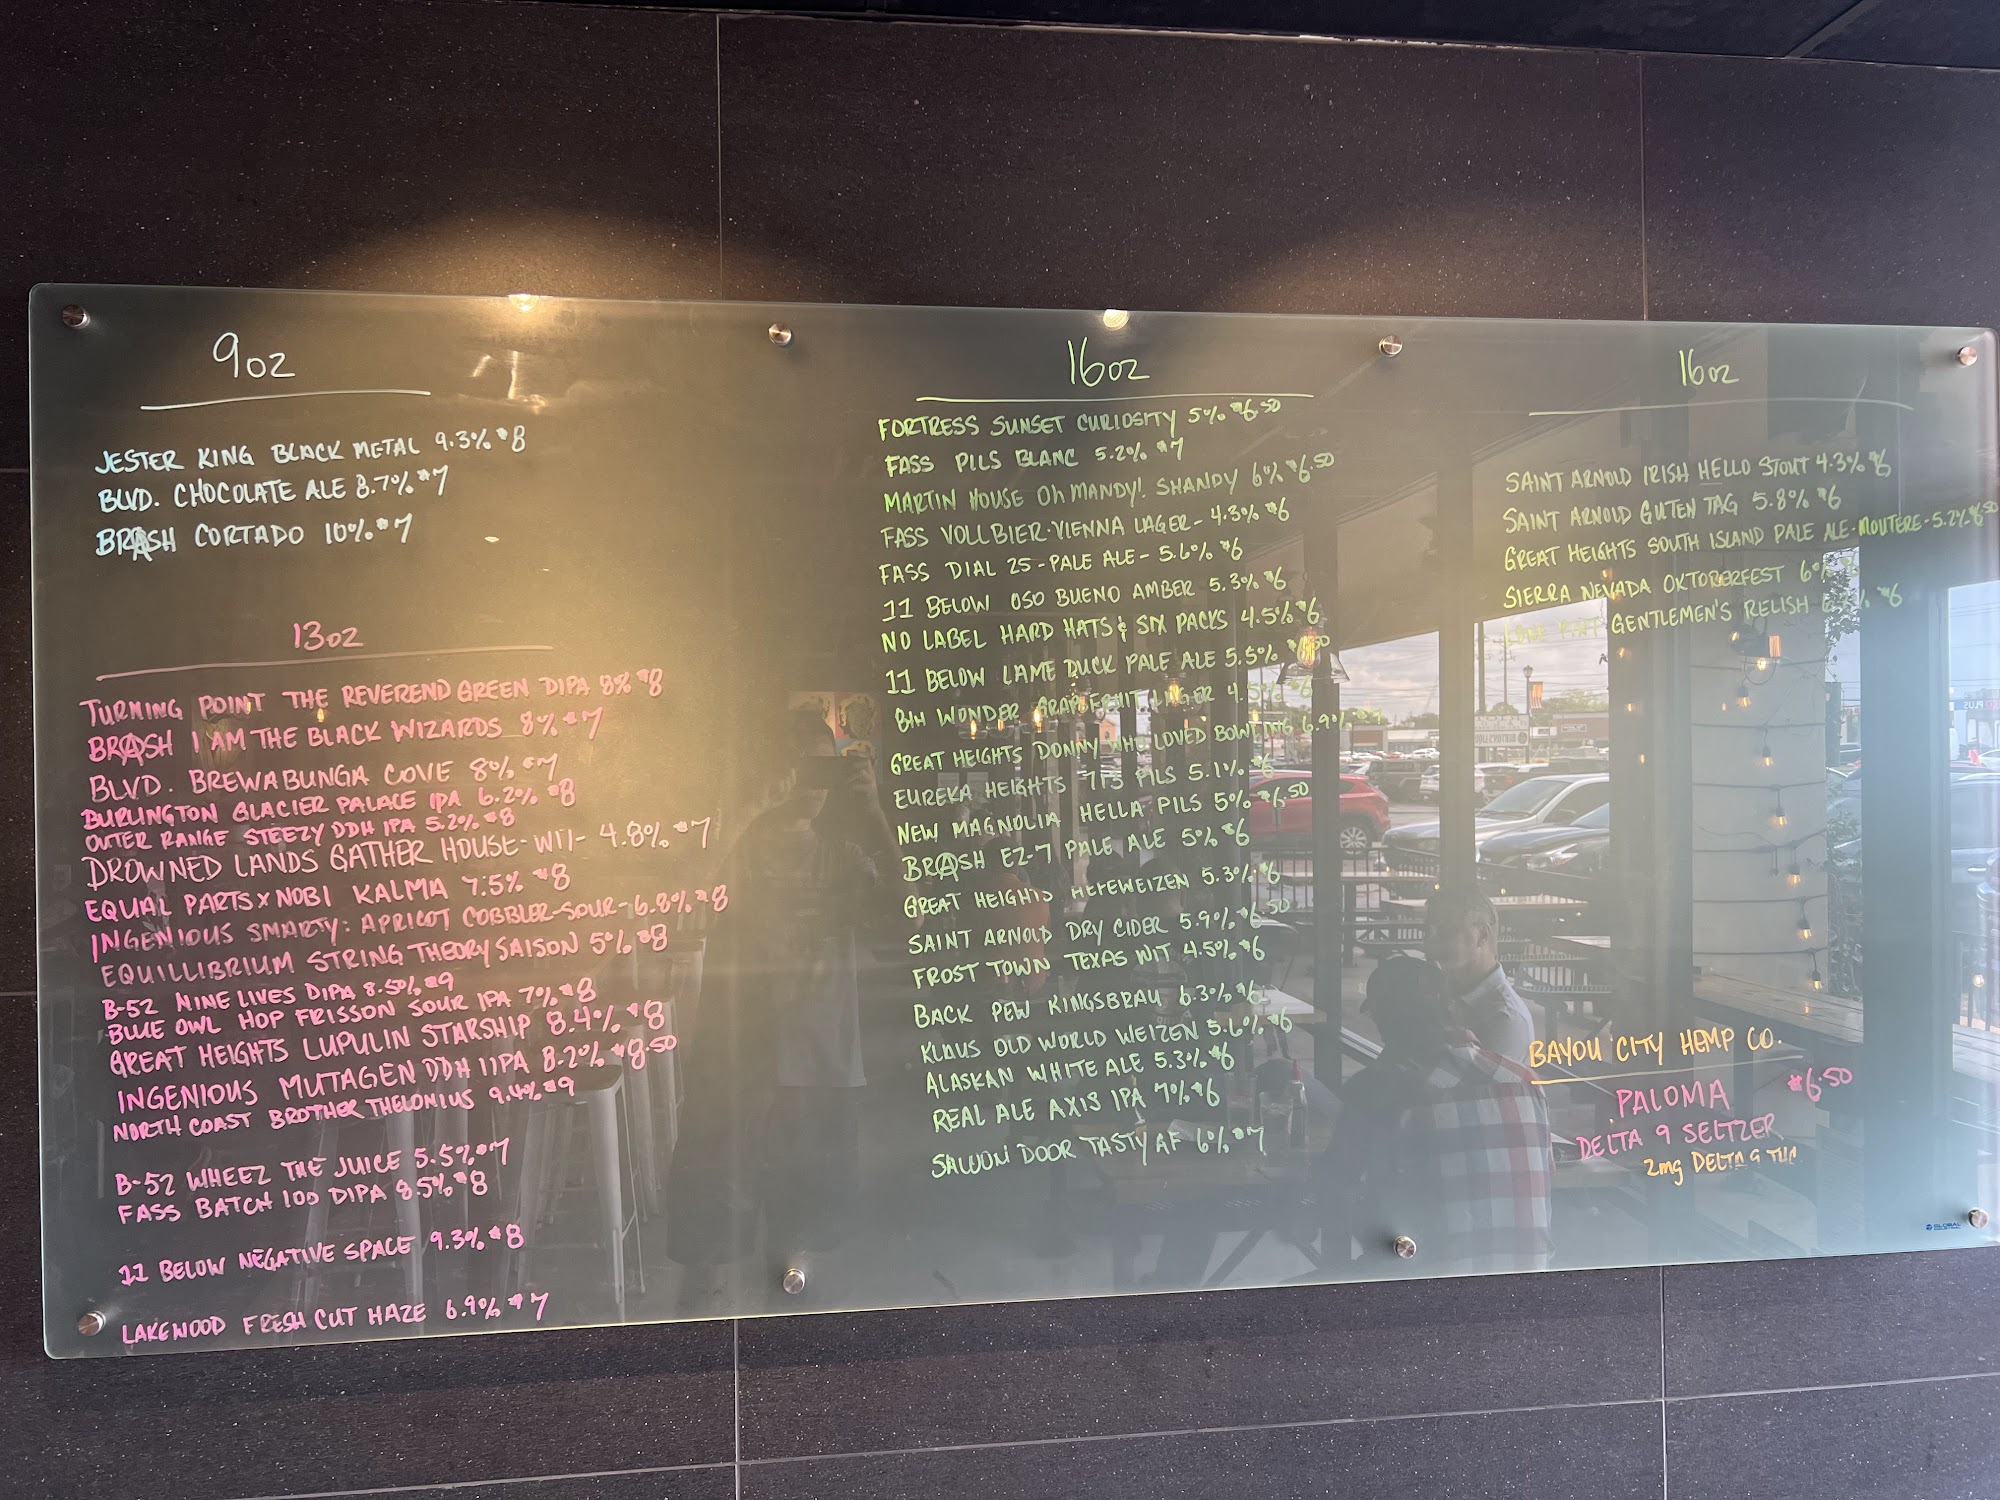 9oz
JESTER KING BLACK METAL 9.3% $8
BLVD. CHOCOLATE ALE 8.7% $7
BRASH CORTADO 10% $7
13oz
TURNING POINT THE REVEREND GREEN DIPA 8% $8
BRASH I AM THE BLACK WIZARDS 8% $7
BLVD. BREWABUNGA COVE 8% $7
BURLINGTON GLACIER PALACE IPA 6.2% $8
OUTER RANGE STEEZY DDH IPA 5.2% $8
DROWNED LANDS GATHER HOUSE-WIT- 4.8% $7
EQUAL PARTS X NOBI KALMA 7.5% $8
INGENIOUS SMARTY: APRICOT COBBLER-SOUR-6.8% $8
EQUILLIBRIUM STRING THEORY SAISON 5% $8
B-52 NINE LIVES DIPA 8.50% $9
BLUE OWL HOP FRISSON SOUR IPA 7% $8
GREAT HEIGHTS LUPULIN STARSHIP 8.4% $8
INGENIOUS MUTAGEN DDH IIPA 8.2% $8.50
NORTH COAST BROTHER THELONIUS 9.4% $9
B-52 WHEEZ THE JUICE 5.5% $7
FASS BATCH 100 DIPA 8.5% $8
11 BELOW NEGATIVE SPACE 9.3% $8
LAKEWOOD FRESH CUT HAZE 6.9% $7
16oz
FORTRESS SUNSET CURIOSITY 5% $6.50
FASS PILS BLANC 5.2% $7
MARTIN HOUSE OH MANDY! SHANDY 6% $6.50
FASS VOLLBIER-VIENNA LAGER- 4.3% $6
FASS DIAL 25-PALE ALE- 5.6% $6
11 BELOW OSO BUENO AMBER 5.3% $6
NO LABEL HARD HATS & SIX PACKS 4.5% $6
11 BELOW LAME DUCK PALE ALE 5.5%
8TH WONDER GRAPEFRUIT LAGER 4.5% $6
GREAT HEIGHTS DONNY WHO LOVED BOWLING 6.9% $7
EUREKA HEIGHTS 713 PILS 5.1% $6
NEW MAGNOLIA HELLA-PILS 5% $6.50
BRASH EZ-7 PALE ALE 5% $6
GREAT HEIGHTS HEFEWEIZEN 5.3% $6
SAINT ARNOLD DRY CIDER 5.9% $6.50
FROST TOWN TEXAS WIT 4.5% $6
BACK PEW KINGSBRAU 6.3% $6
KLAUS OLD WORLD WEIZEN 5.6% $6
ALASKAN WHITE ALE 5.3% $6
REAL ALE AXIS IPA 7% $6
SALOON DOOR TASTY AF 6% $7
16oz
SAINT ARNOLD IRISH HELLO STOUT 4.3% $6
SAINT ARNOLD GUTEN TAG 5.8% $6
GREAT HEIGHTS SOUTH ISLAND PALE ALE-MOUTERE-5.2% $6.50
SIERRA NEVADA OKTOBERFEST 6%
LONE PINT GENTLEMEN'S RELISH $6
BAYOU CITY HEMP CO.
PALOMA $6.50
DELTA 9 SELTZER
2mg DELTA 9 THC
GLOBAL